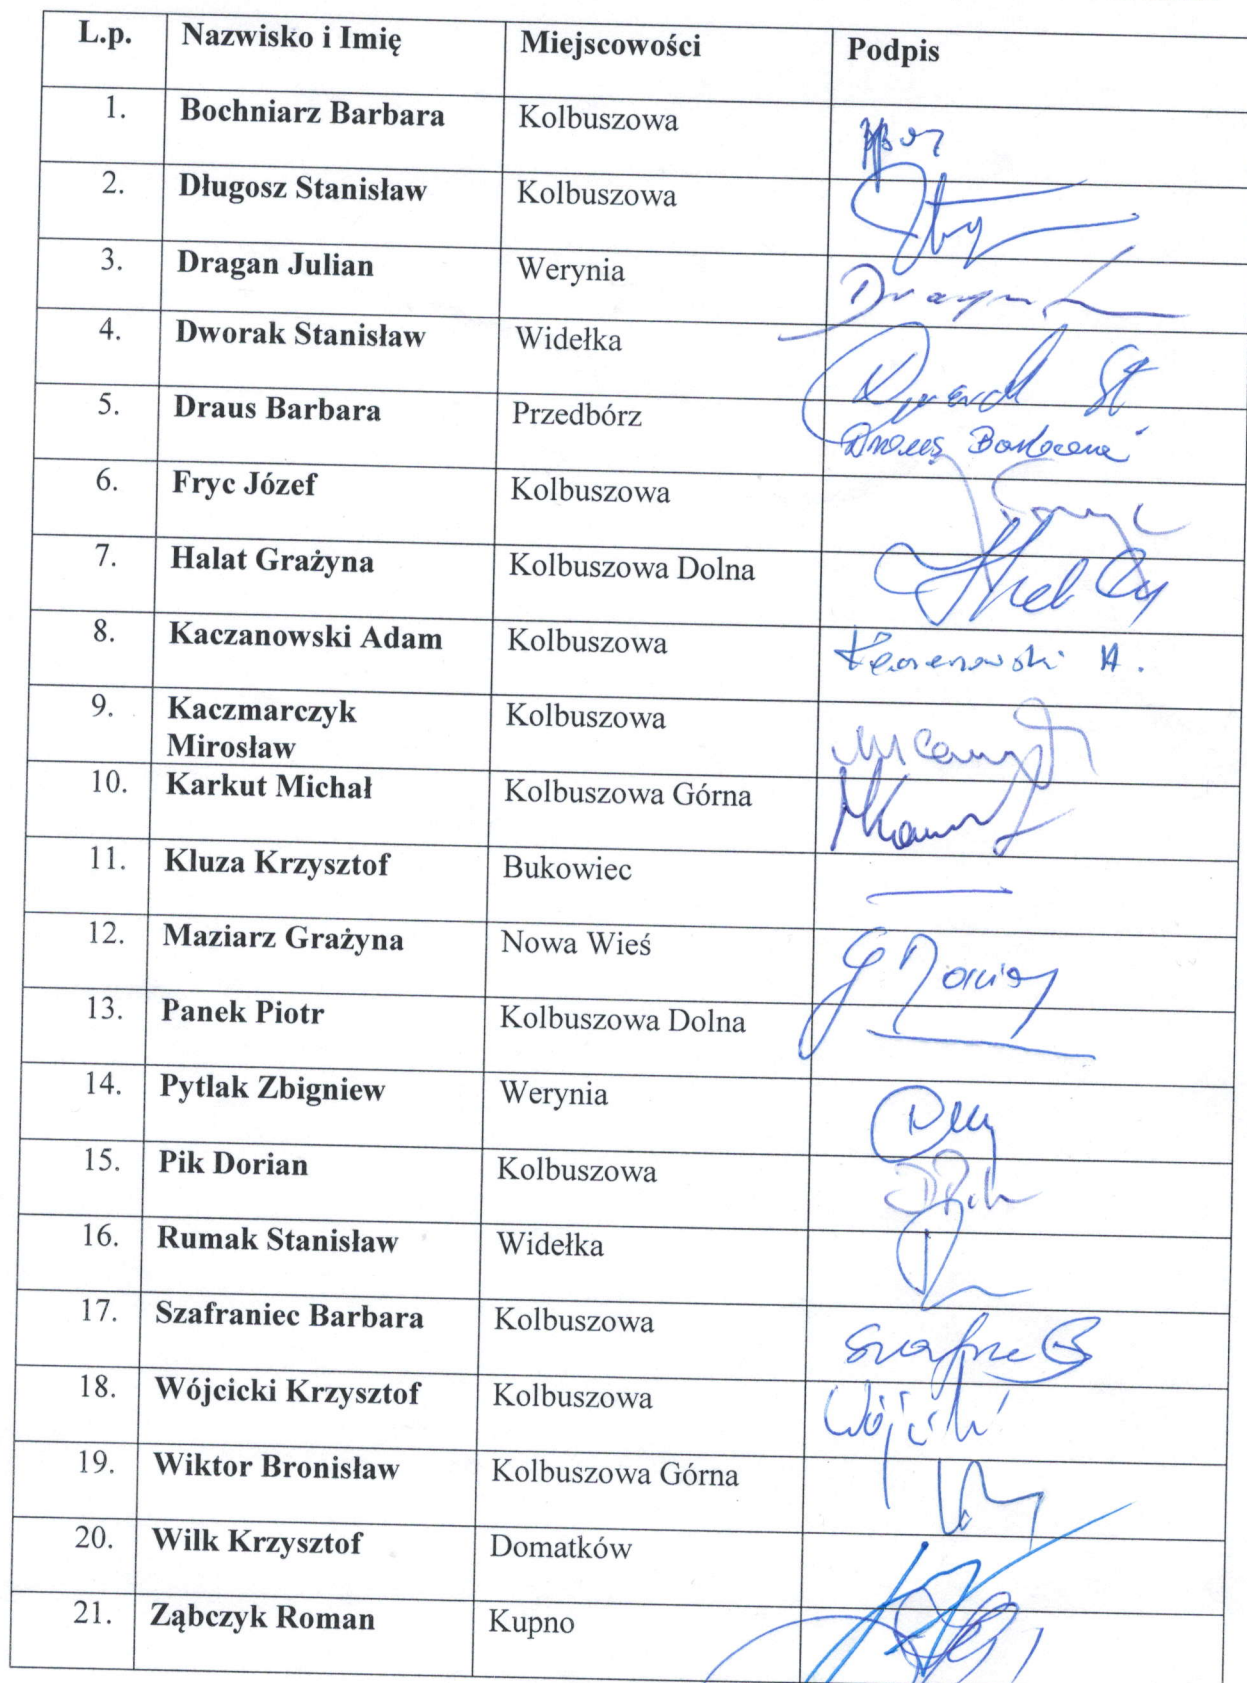 L.p. Nazwisko i Imię Miejscowości Podpis
1. Bochniarz Barbara Kolbuszowa
2. Długosz Stanisław Kolbuszowa
3. Dragan Julian Werynia Dragan
4. Dworak Stanisław Widełka Dworak St
5. Draus Barbara Przedbórz Draus Barbara
6. Fryc Józef Kolbuszowa
7. Halat Grażyna Kolbuszowa Dolna
8. Kaczanowski Adam Kolbuszowa Kaczanowski A.
9. Kaczmarczyk Kolbuszowa
Mirosław
10. Karkut Michał Kolbuszowa Górna
11. Kluza Krzysztof Bukowiec
12. Maziarz Grażyna Nowa Wieś
13. Panek Piotr Kolbuszowa Dolna
14. Pytlak Zbigniew Werynia
15. Pik Dorian Kolbuszowa DPik
16. Rumak Stanisław Widełka
17. Szafraniec Barbara Kolbuszowa
18. Wójcicki Krzysztof Kolbuszowa
19. Wiktor Bronisław Kolbuszowa Górna
20. Wilk Krzysztof Domatków
21. Ząbczyk Roman Kupno